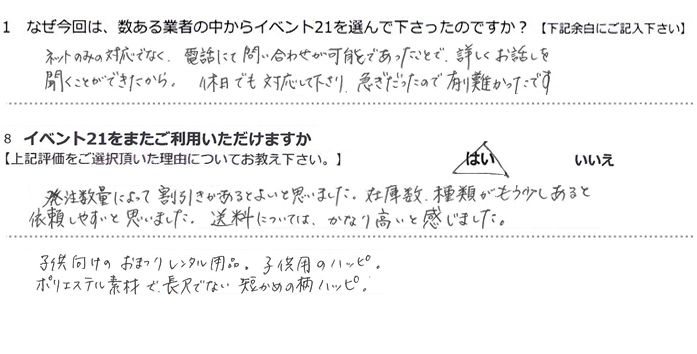 1 なぜ今回は、数ある業者の中からイベント21を選んで下さったのですか?【下記余白にご記入下さい】
ネットのみの対応でなく、電話にて問い合わせが可能であったことで、詳しくお話しを
聞くことができたから。 休日でも対応して下さり、急ぎだったので有り難かったです
8 イベント21をまたご利用いただけますか
【上記評価をご選択頂いた理由についてお教え下さい。】 はい いいえ
発注数量によって割引きがあるとよいと思いました。在庫数、種類がもう少しあると
依頼しやすいと思いました。送料については、かなり高いと感じました。
子供向けのおまつりレンタル用品。子供用のハッピ。
ポリエステル素材で、長尺でない短かめの柄ハッピ。